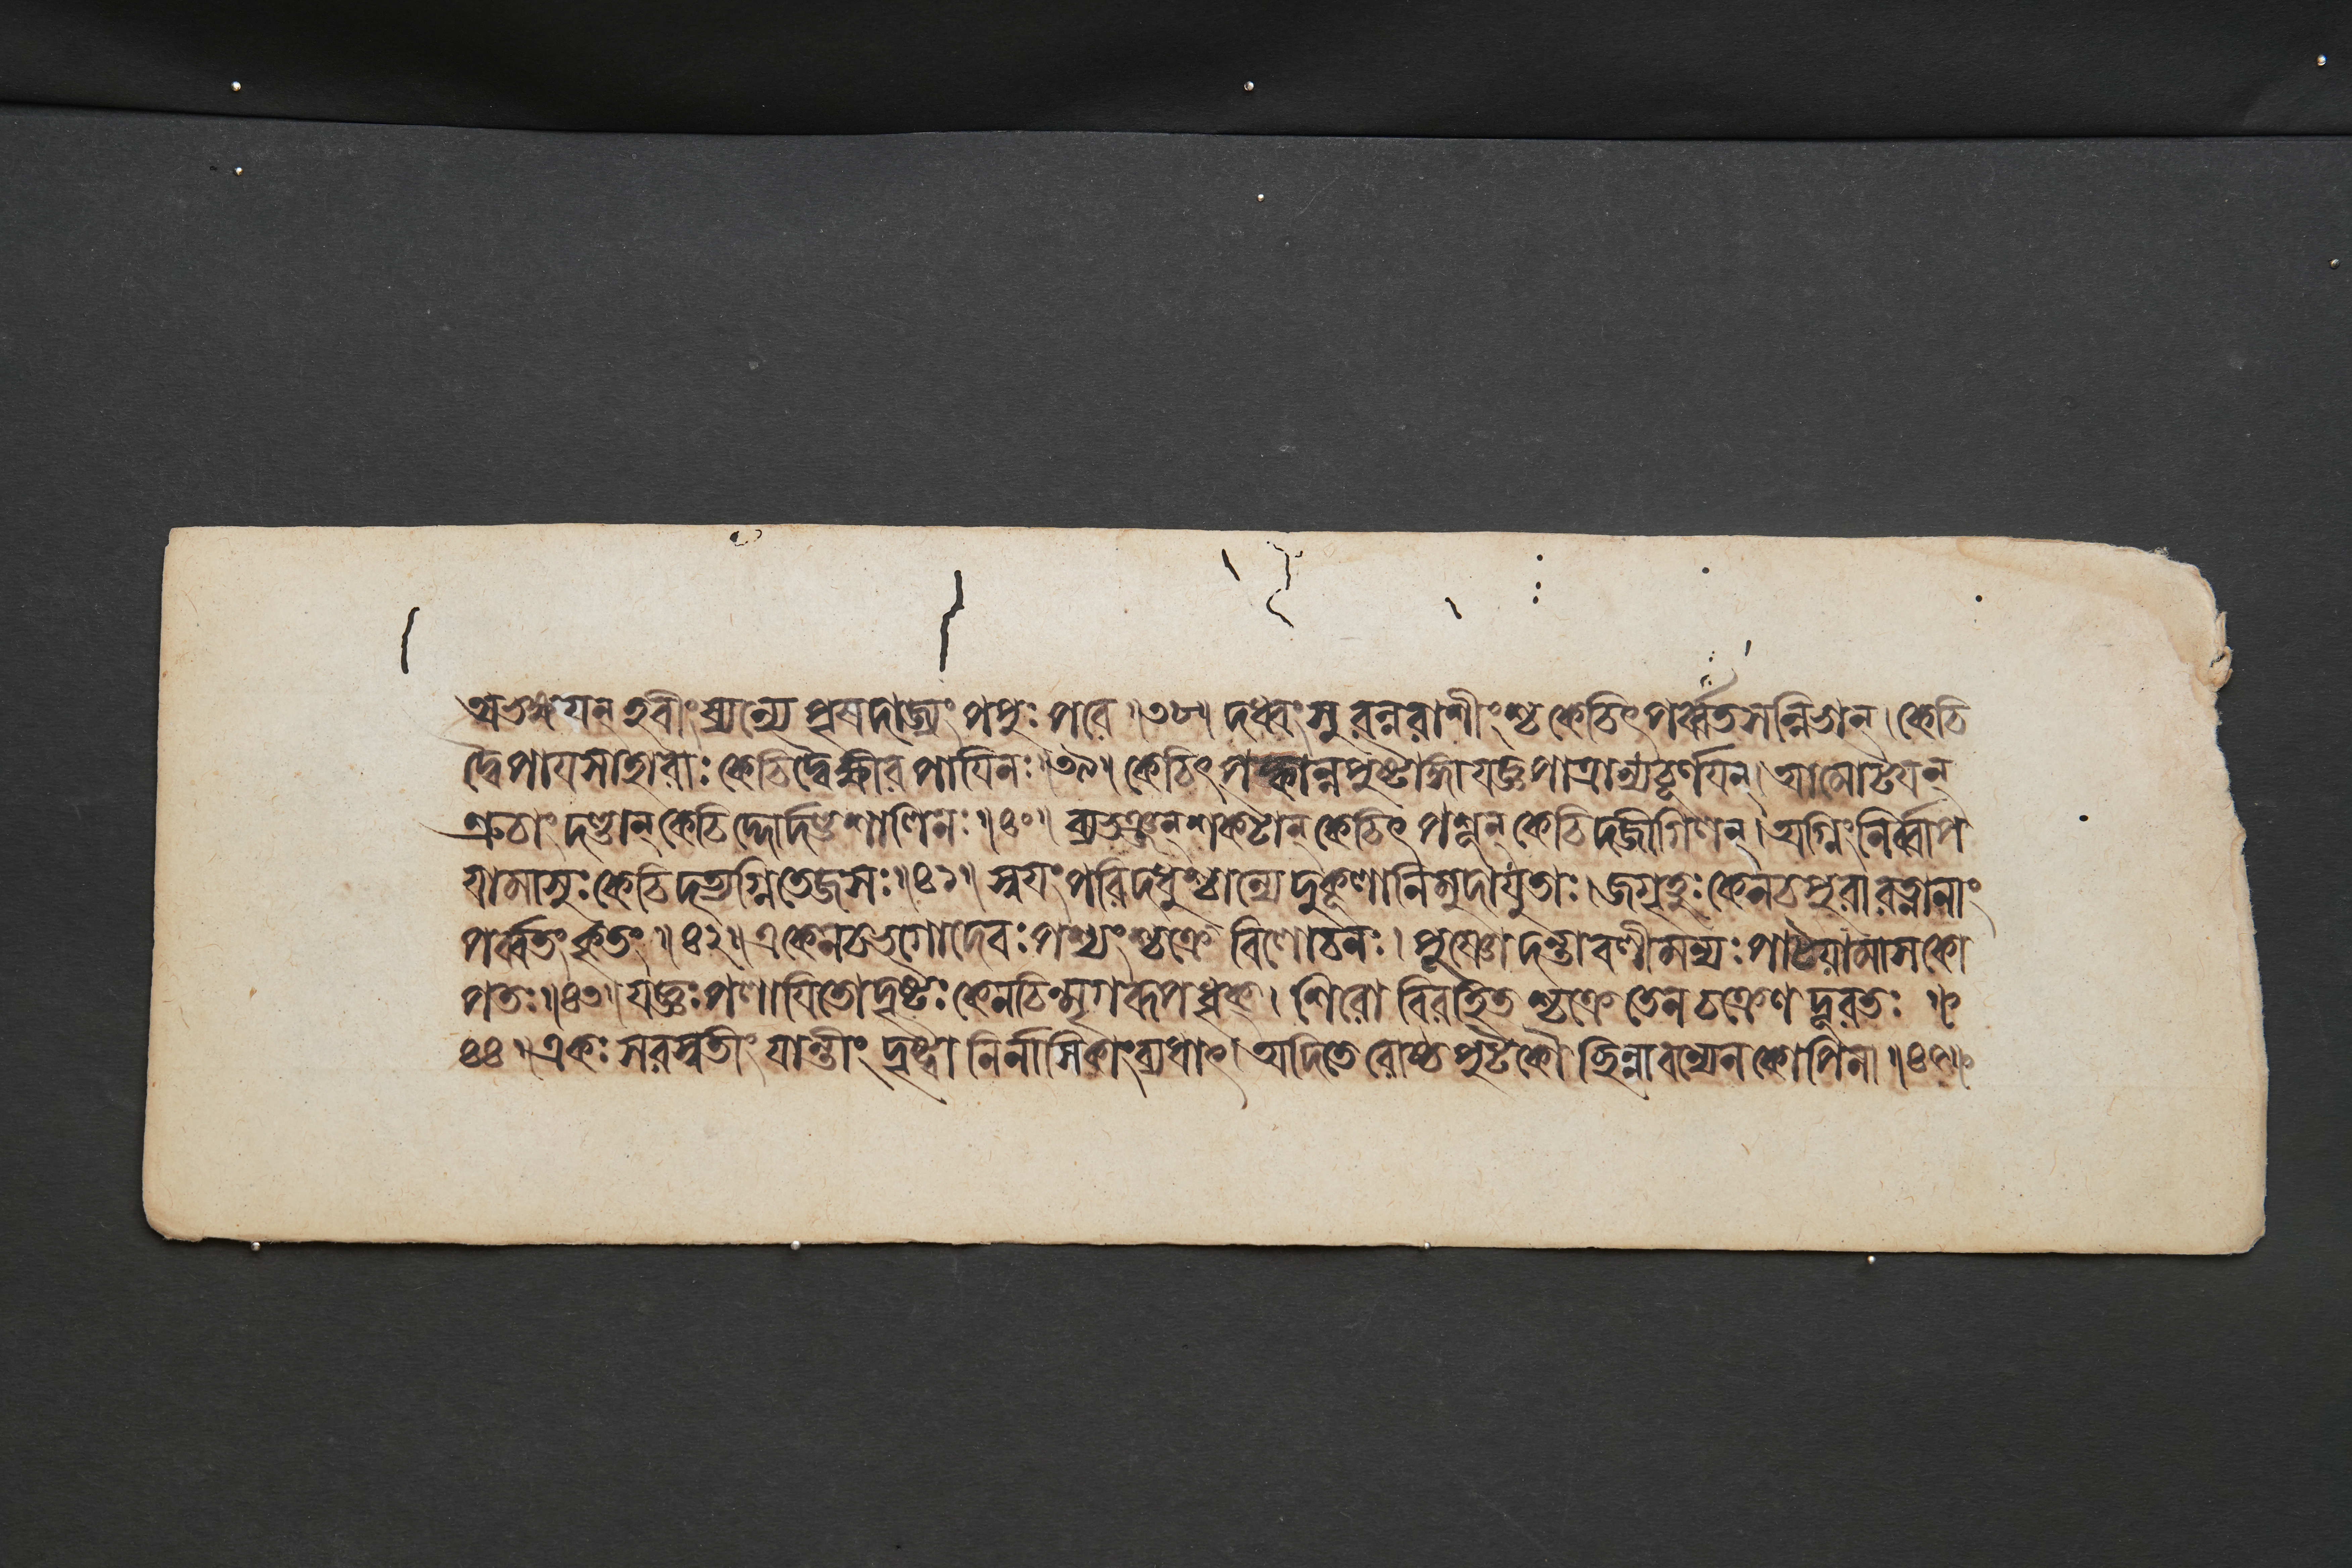 অভক্ষয়ন্ হবীংষ্যন্যে পৃষদাজ্যং পপুঃ পরে ॥৩৮॥ দধ্বংসুরন্নরাশীংশ্চ কেচিৎ পর্ব্বতসন্নিভান্। কেচি
দ্বৈ পায়সাহারাঃ কেচিদ্বৈ ক্ষীরপায়িনঃ॥৩৯॥ কেচিৎ পক্কান্নপুষ্টাঙ্গা যজ্ঞপাত্রাণ্যচূর্ণয়ন্। আমোটয়ন্
স্রুচাং দণ্ডান্ কেচিদ্দোর্দণ্ডশালিনঃ॥৪০॥ ব্যভঞ্জন্ শকটান্ কেচিৎ পশূন্ কেচিদজীগিলন্। অগ্নিং নির্ব্বাপ
য়ামাসুঃ কেচিদত্যগ্নিতেজসঃ॥৪১॥ স্বয়ং পরিদধুশ্চান্যে দুকূলানি মুদা যুতাঃ। জগৃহুঃ কেনচ পুরা রত্নানাং
পর্ব্বতং কৃতং ॥৪২॥ একেন চ ভগো দেবঃ পশ্যংশ্চক্রে বিলোচনঃ। পূষ্ণো দন্তাবলীমন্যঃ পাটয়ামাস কো
পতঃ॥৪৩॥ যজ্ঞঃ পলায়িতো দৃষ্টঃ কেনচিন্মৃগরূপধৃক্। শিরোবিরহিতশ্চক্রে তেন চক্রেণ দূরতঃ ॥
৪৪॥ একঃ সরস্বতীং যান্তীং দৃষ্ট্বা নির্নাসিকাং ব্যধাৎ। অদিতেরোষ্ঠপুটকৌ ছিন্নাবন্যেন কোপিনা ॥৪৫॥